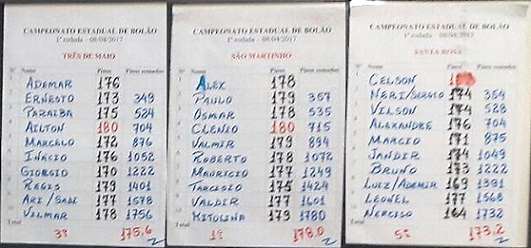 CAMPEONATO ESTADUAL DE BOLÃO
1ª rodada - 08/04/2017
TRÊS DE MAIO
Nº Nome Pinos Pinos somados
ADEMAR 176
ERNESTO 173 349
PARAIBA 175 524
AILTON 180 704
MARCELO 172 876
INÁCIO 176 1052
GIORGIO 170 1222
REGIS 179 1401
ARI / 177 1578
VILMAR 178 1756
Total
3º 175,6
CAMPEONATO ESTADUAL DE BOLÃO
1ª rodada - 08/04/2017
SÃO MARTINHO
Nº Nome Pinos Pinos somados
ALEX 178
PAULO 179 357
OSMAR 178 535
CLENIO 180 715
VALMIR 179 894
ROBERTO 178 1072
MAURICIO 177 1249
TARCISIO 175 1424
VALDIR 177 1601
179 1780
Total
1º 178,0
CAMPEONATO ESTADUAL DE BOLÃO
1ª rodada - 08/04/2017
SANTA ROSA
Nº Nome Pinos Pinos somados
CELSON
NERI/SERGIO 174 354
VILSON 174 528
ALEXANDRE 176 704
MARCIO 171 875
JANDIR 174 1049
BRUNO 173 1222
LUIZ/ADEMIR 169 1391
LEONEL 177 1568
NERCISO 164 1732
Total
5º 173,2